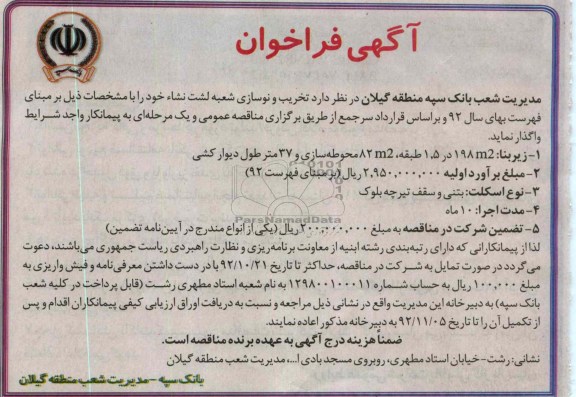 آگهی فراخوان
مدیریت شعب بانک سپه منطقه گیلان در نظر دارد تخریب و نوسازی شعبه لشت نشاء خود را با مشخصات ذیل بر مبنای
فهرست بهای سال ۹۲ و براساس قرارداد سرجمع از طریق برگزاری مناقصه عمومی و یک مرحله‌ای به پیمانکار واجد شرایط
واگذار نماید.
۱- زیربنا: ۱۹۸ m2 در ۱,۵ طبقه، ۸۲ m2 محوطه‌سازی و ۳۷ متر طول دیوار کشی
۲- مبلغ برآورد اولیه ۲,۹۵۰,۰۰۰,۰۰۰ ریال (بر مبنای فهرست ۹۲)
۳- نوع اسکلت: بتنی و سقف تیرچه بلوک
۴- مدت اجرا: ۱۰ ماه
ParsNamadData
۵- تضمین شرکت در مناقصه به مبلغ ۲۰۰,۰۰۰,۰۰۰ ریال (یکی از انواع مندرج در آیین‌نامه تضمین)
لذا از پیمانکارانی که دارای رتبه‌بندی رشته ابنیه از معاونت برنامه‌ریزی و نظارت راهبردی ریاست جمهوری می‌باشند، دعوت
می‌گردد در صورت تمایل به شرکت در مناقصه، حداکثر تا تاریخ ۹۲/۱۰/۲۱ با در دست داشتن معرفی‌نامه و فیش واریزی به
مبلغ ۱۰۰,۰۰۰ ریال به حساب شماره ۱۲۹۸۰۰۱۰۰۰۱۱ به نام شعبه استاد مطهری رشت (قابل پرداخت در کلیه شعب
بانک سپه) به دبیرخانه این مدیریت واقع در نشانی ذیل مراجعه و نسبت به دریافت اوراق ارزیابی کیفی پیمانکاران اقدام و پس
از تکمیل آن را تا تاریخ ۹۲/۱۱/۰۵ به دبیرخانه مذکور اعاده نمایند.
ضمناً هزینه درج آگهی به عهده برنده مناقصه است.
نشانی: رشت- خیابان استاد مطهری، روبروی مسجد بادی ا...، مدیریت شعب منطقه گیلان
بانک سپه - مدیریت شعب منطقه گیلان